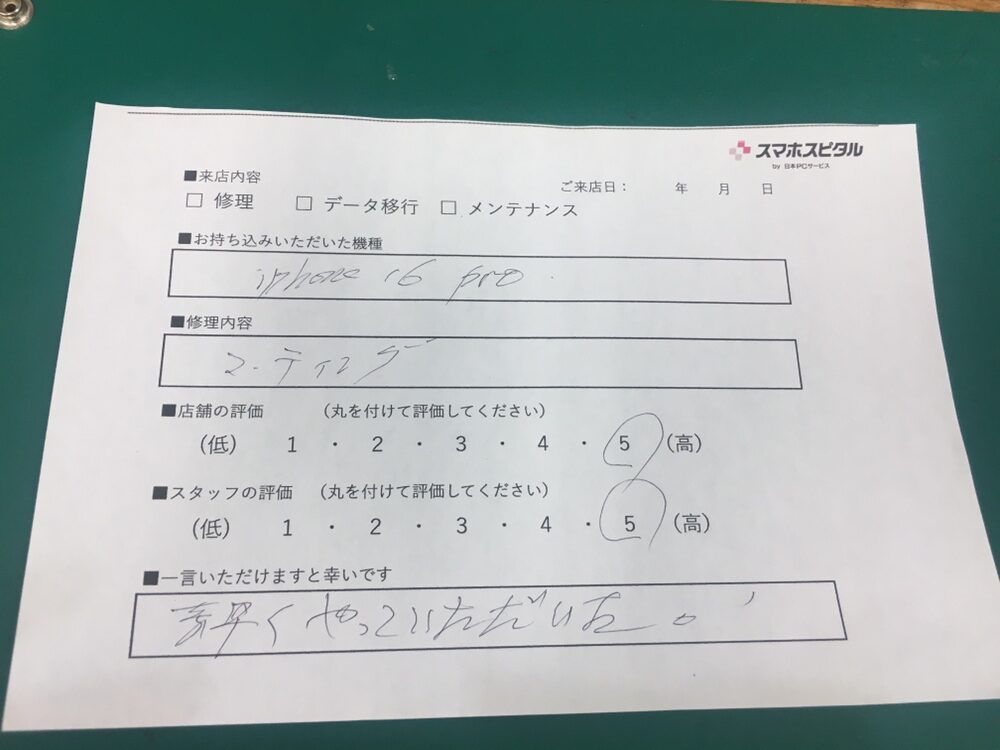 スマホスピタル
by 日本PCサービス
■来店内容
ご来店日： 年 月 日
□ 修理 □ データ移行 □ メンテナンス
■お持ち込みいただいた機種
iphone 16 pro
■修理内容
コーティング
■店舗の評価 （丸を付けて評価してください）
（低） 1 ・ 2 ・ 3 ・ 4 ・ 5 （高）
■スタッフの評価 （丸を付けて評価してください）
（低） 1 ・ 2 ・ 3 ・ 4 ・ 5 （高）
■一言いただけますと幸いです
早くやっていただいた。